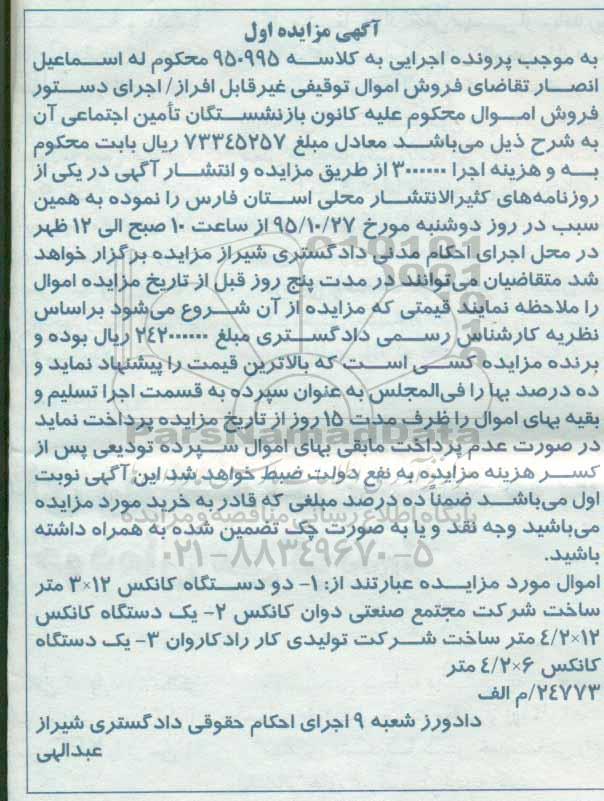 آگهی مزایده اول
به موجب پرونده اجرایی به کلاسه ۹۵۰۹۹۵ محکوم له اسماعیل
انصار تقاضای فروش اموال توقیفی غیرقابل افراز/ اجرای دستور
فروش اموال محکوم علیه کانون بازنشستگان تأمین اجتماعی آن
به شرح ذیل می‌باشد معادل مبلغ ۷۳۳۴۵۲۵۷ ریال بابت محکوم
به و هزینه اجرا ۳۰۰۰۰۰۰ از طریق مزایده و انتشار آگهی در یکی از
روزنامه‌های کثیرالانتشار محلی استان فارس را نموده به همین
سبب در روز دوشنبه مورخ ۹۵/۱۰/۲۷ از ساعت ۱۰ صبح الی ۱۲ ظهر
در محل اجرای احکام مدنی دادگستری شیراز مزایده برگزار خواهد
شد متقاضیان می‌توانند در مدت پنج روز قبل از تاریخ مزایده اموال
را ملاحظه نمایند قیمتی که مزایده از آن شروع می‌شود براساس
نظریه کارشناس رسمی دادگستری مبلغ ۲۴۲۰۰۰۰۰۰ ریال بوده و
برنده مزایده کسی است که بالاترین قیمت را پیشنهاد نماید و
ده درصد بها را فی‌المجلس به عنوان سپرده به قسمت اجرا تسلیم و
بقیه بهای اموال را ظرف مدت ۱۵ روز از تاریخ مزایده پرداخت نماید
ParsNamadData
در صورت عدم پرداخت مابقی بهای اموال سپرده تودیعی پس از
کسر هزینه مزایده به نفع دولت ضبط خواهد شد این آگهی نوبت
اول می‌باشد ضمناً ده درصد مبلغی که قادر به خرید مورد مزایده
پایگاه اطلاع رسانی مناقصه و مزایده
می‌باشید وجه نقد و یا به صورت چک تضمین شده به همراه داشته
باشید.
۰۲۱-۸۸۳۴۹۶۷۰-۵
اموال مورد مزایده عبارتند از: ۱- دو دستگاه کانکس ۱۲×۳ متر
ساخت شرکت مجتمع صنعتی دوان کانکس ۲- یک دستگاه کانکس
۱۲×۴/۲ متر ساخت شرکت تولیدی کار راد کاروان ۳- یک دستگاه
کانکس ۶×۴/۲ متر
۲۴۷۷۳/م الف
دادورز شعبه ۹ اجرای احکام حقوقی دادگستری شیراز
عبدالهی